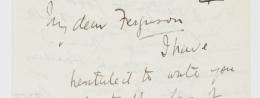 My dear Ferguson
I have
hesitated to write you